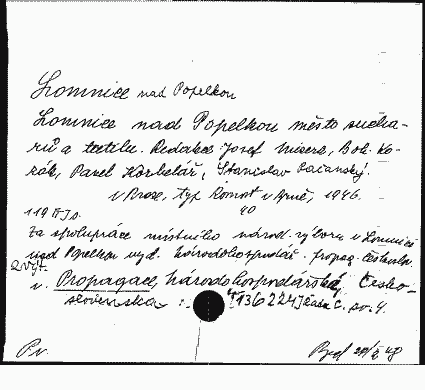 Lomnice nad Popelkou
Lomnice nad Popelkou město sucha-
rů a textilu. Redakce Josef Misera, Boh. Ko-
zák, Pavel Körbelář, Stanislav Pačanský.
v Brně, typ. v Brně, 1946.
40
119
Za spolupráce místního národ. výboru v Lomnici
nad Popelkou vyd. národohospodář. propag.
v. Propagace národohospodářská Česko-
slovenska :
136224 č. sv. 4.